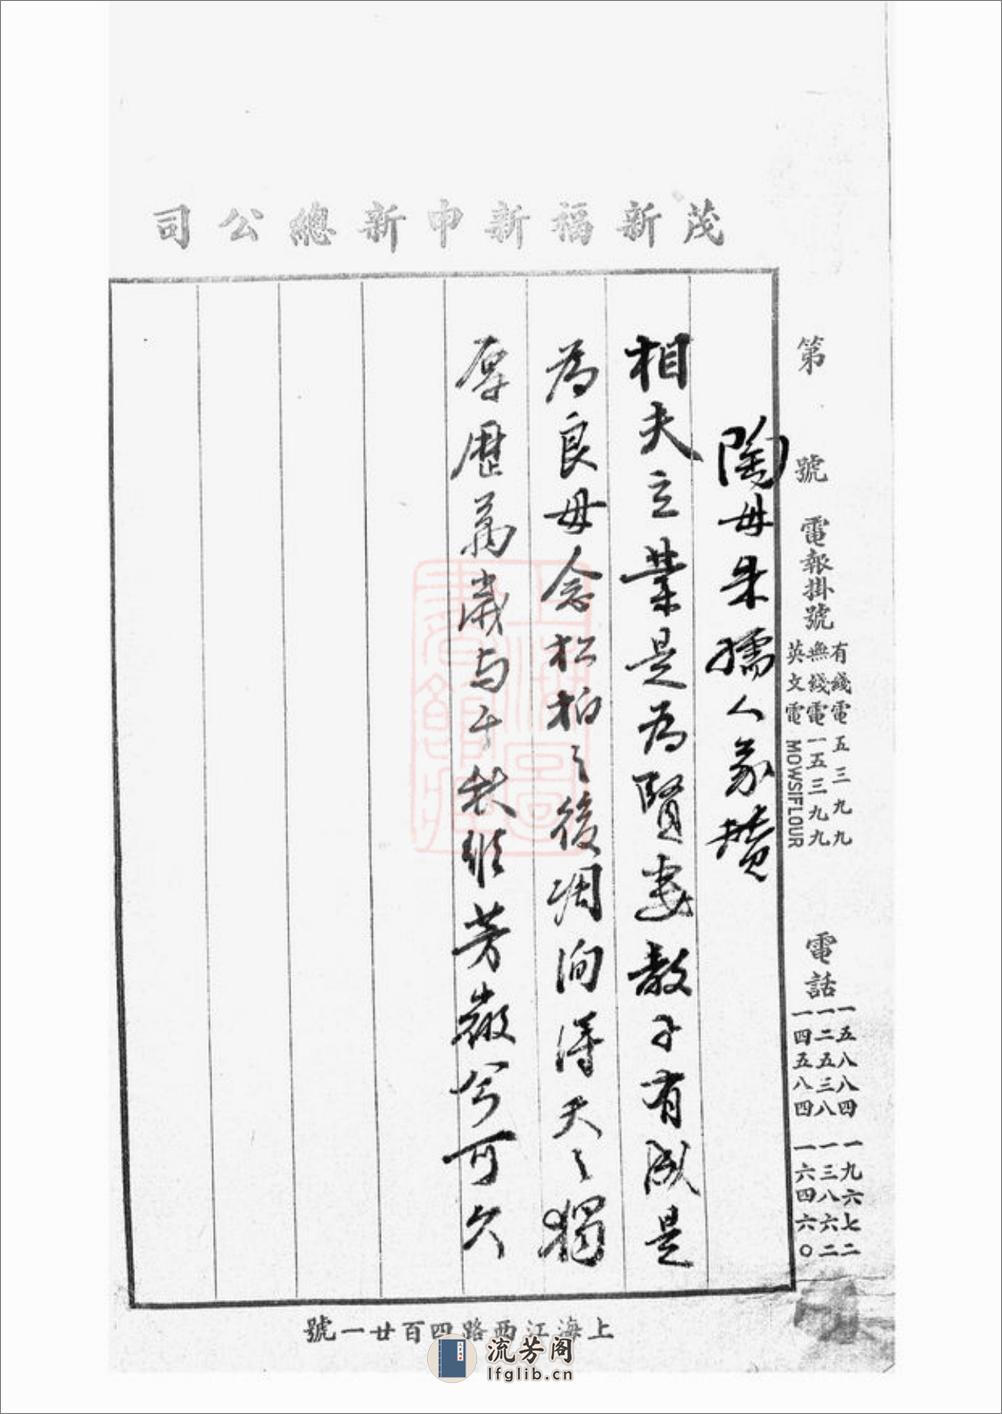 茂新福新申新總公司
第　號　電報掛號
有綫電五三九九
無綫電一五三九九
英文電MOWSIFLOUR
電話
一五八八四　一九六七二
一二五三八　一三八六二
一四五八四　一六四六〇
陶母朱孺人象攢
相夫立業是為賢妻教子有成是
為良母念松柏之後凋洵得天之獨
厚歷萬歲与千秋維芳徽兮可久
上海圖書館藏
上海江西路四百廿一號
流芳阁
lfglib.cn